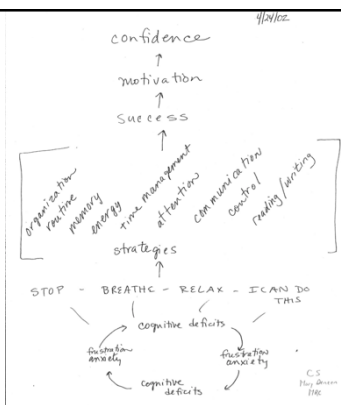 4/24/02
confidence
↑
motivation
↑
success
↑
organization
routine
memory
energy
time management
attention
communication
control
reading/writing
strategies
↑
STOP - BREATHE - RELAX - I CAN DO
THIS
cognitive deficits
frustration
anxiety
frustration
anxiety
cognitive
deficits
C.S